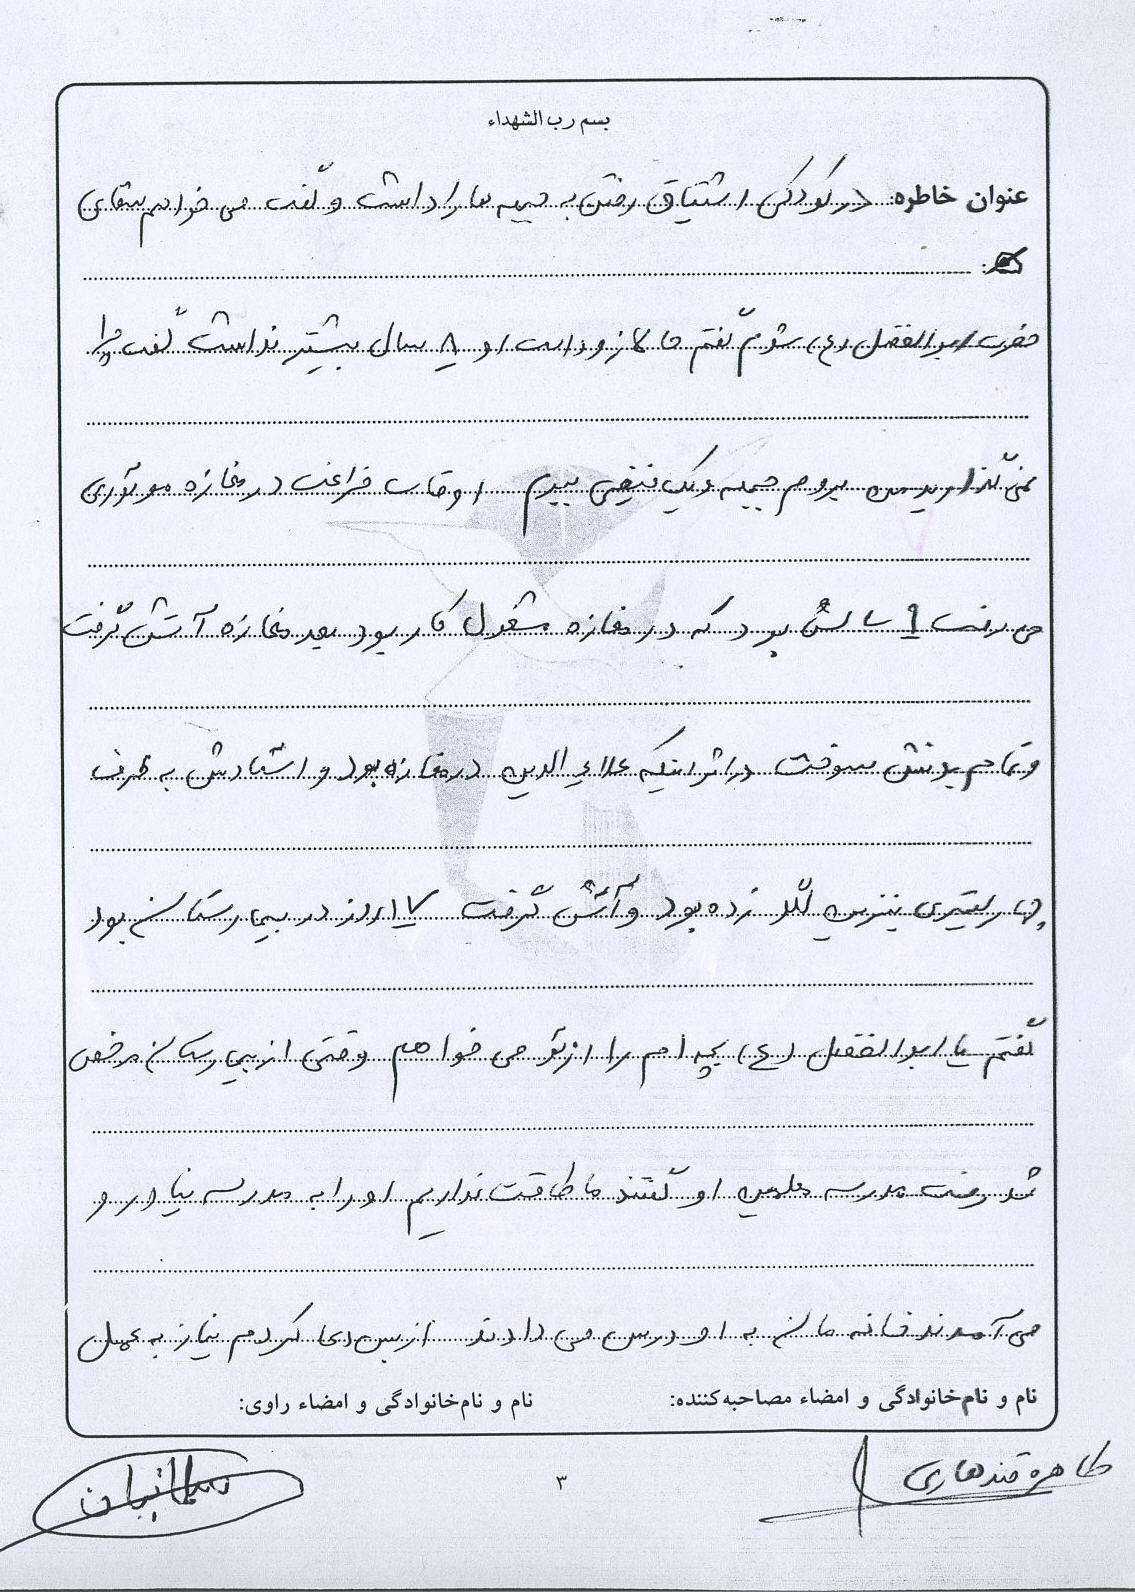 بسم رب الشهداء
عنوان خاطره: در کودکی اشتیاق رفتن به جبهه ها را داشت و گفت می خواهم سقای
حضرت ابوالفضل (ع) شوم گفتم حالا زود است او ۸ سال بیشتر نداشت گفت چرا
نمی گذارید من بروم جبهه و یک فیضی ببرم اوقات فراغت در مغازه موتوری
می رفت ۹ سالش بود که در مغازه مشغول کار بود بعد مغازه آتش گرفت
و تمام بدنش سوخت در اثر اینکه علاء الدین در مغازه بود و استادش به ظرف
چهار لیتری بنزین لگد زده بود و آتش گرفت ۱۷ روز در بیمارستان بود
گفتم یا ابوالفضل (ع) بچه ام را از تو می خواهم وقتی از بیمارستان مرخص
شد رفت مدرسه معلمین او گفتند ما طاقت نداریم او را به مدرسه نیاور و
می آمدند خانه مان به او درس می دادند از بس دعا کردم نیاز به عمل
نام و نام‌خانوادگی و امضاء مصاحبه‌کننده:
نام و نام‌خانوادگی و امضاء راوی:
طاهره قندهاری
۳